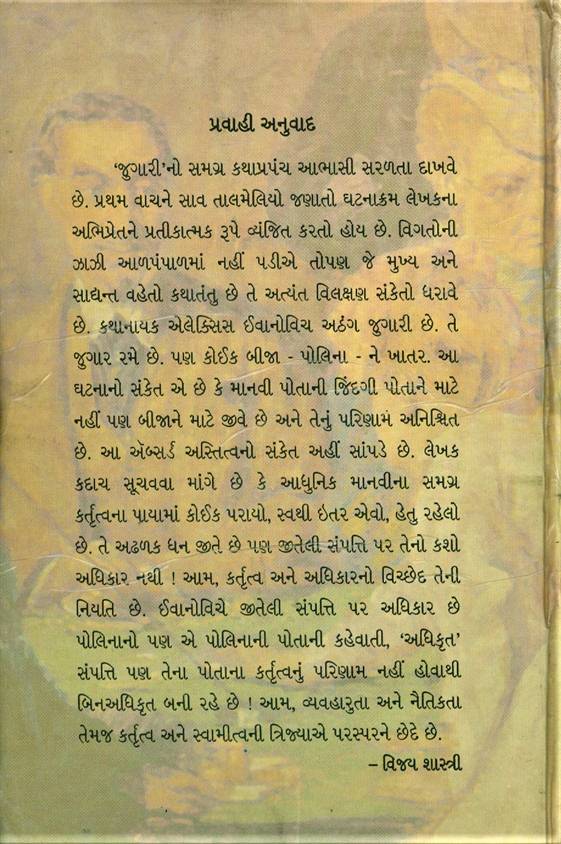 પ્રવાહી અનુવાદ
‘જુગારી’નો સમગ્ર કથાપ્રપંચ આભાસી સરળતા દાખવે
છે. પ્રથમ વાચને સાવ તાલમેલિયો જણાતો ઘટનાક્રમ લેખકના
અભિપ્રેતને પ્રતીકાત્મક રૂપે વ્યંજિત કરતો હોય છે. વિગતોની
ઝાઝી આળપંપાળમાં નહીં પડીએ તોપણ જે મુખ્ય અને
સાદ્યન્ત વહેતો કથાતંતુ છે તે અત્યંત વિલક્ષણ સંકેતો ધરાવે
છે. કથાનાયક એલેક્સિસ ઈવાનોવિચ અઠંગ જુગારી છે. તે
જુગાર રમે છે. પણ કોઈક બીજા - પોલિના - ને ખાતર. આ
ઘટનાનો સંકેત એ છે કે માનવી પોતાની જિંદગી પોતાને માટે
નહીં પણ બીજાને માટે જીવે છે અને તેનું પરિણામ અનિશ્ચિત
છે. આ ઍબ્સર્ડ અસ્તિત્વનો સંકેત અહીં સાંપડે છે. લેખક
કદાચ સૂચવવા માંગે છે કે આધુનિક માનવીના સમગ્ર
કર્તૃત્વના પાયામાં કોઈક પરાયો, સ્વથી ઇતર એવો, હેતુ રહેલો
છે. તે અઢળક ધન જીતે છે પણ જીતેલી સંપત્તિ પર તેનો કશો
અધિકાર નથી ! આમ, કર્તૃત્વ અને અધિકારનો વિચ્છેદ તેની
નિયતિ છે. ઈવાનોવિચે જીતેલી સંપત્તિ પર અધિકાર છે
પોલિનાનો પણ એ પોલિનાની પોતાની કહેવાતી, ‘અધિકૃત’
સંપત્તિ પણ તેના પોતાના કર્તૃત્વનું પરિણામ નહીં હોવાથી
બિનઅધિકૃત બની રહે છે ! આમ, વ્યવહારુતા અને નૈતિકતા
તેમજ કર્તૃત્વ અને સ્વામીત્વની ત્રિજ્યાએ પરસ્પરને છેદે છે.
– વિજય શાસ્ત્રી